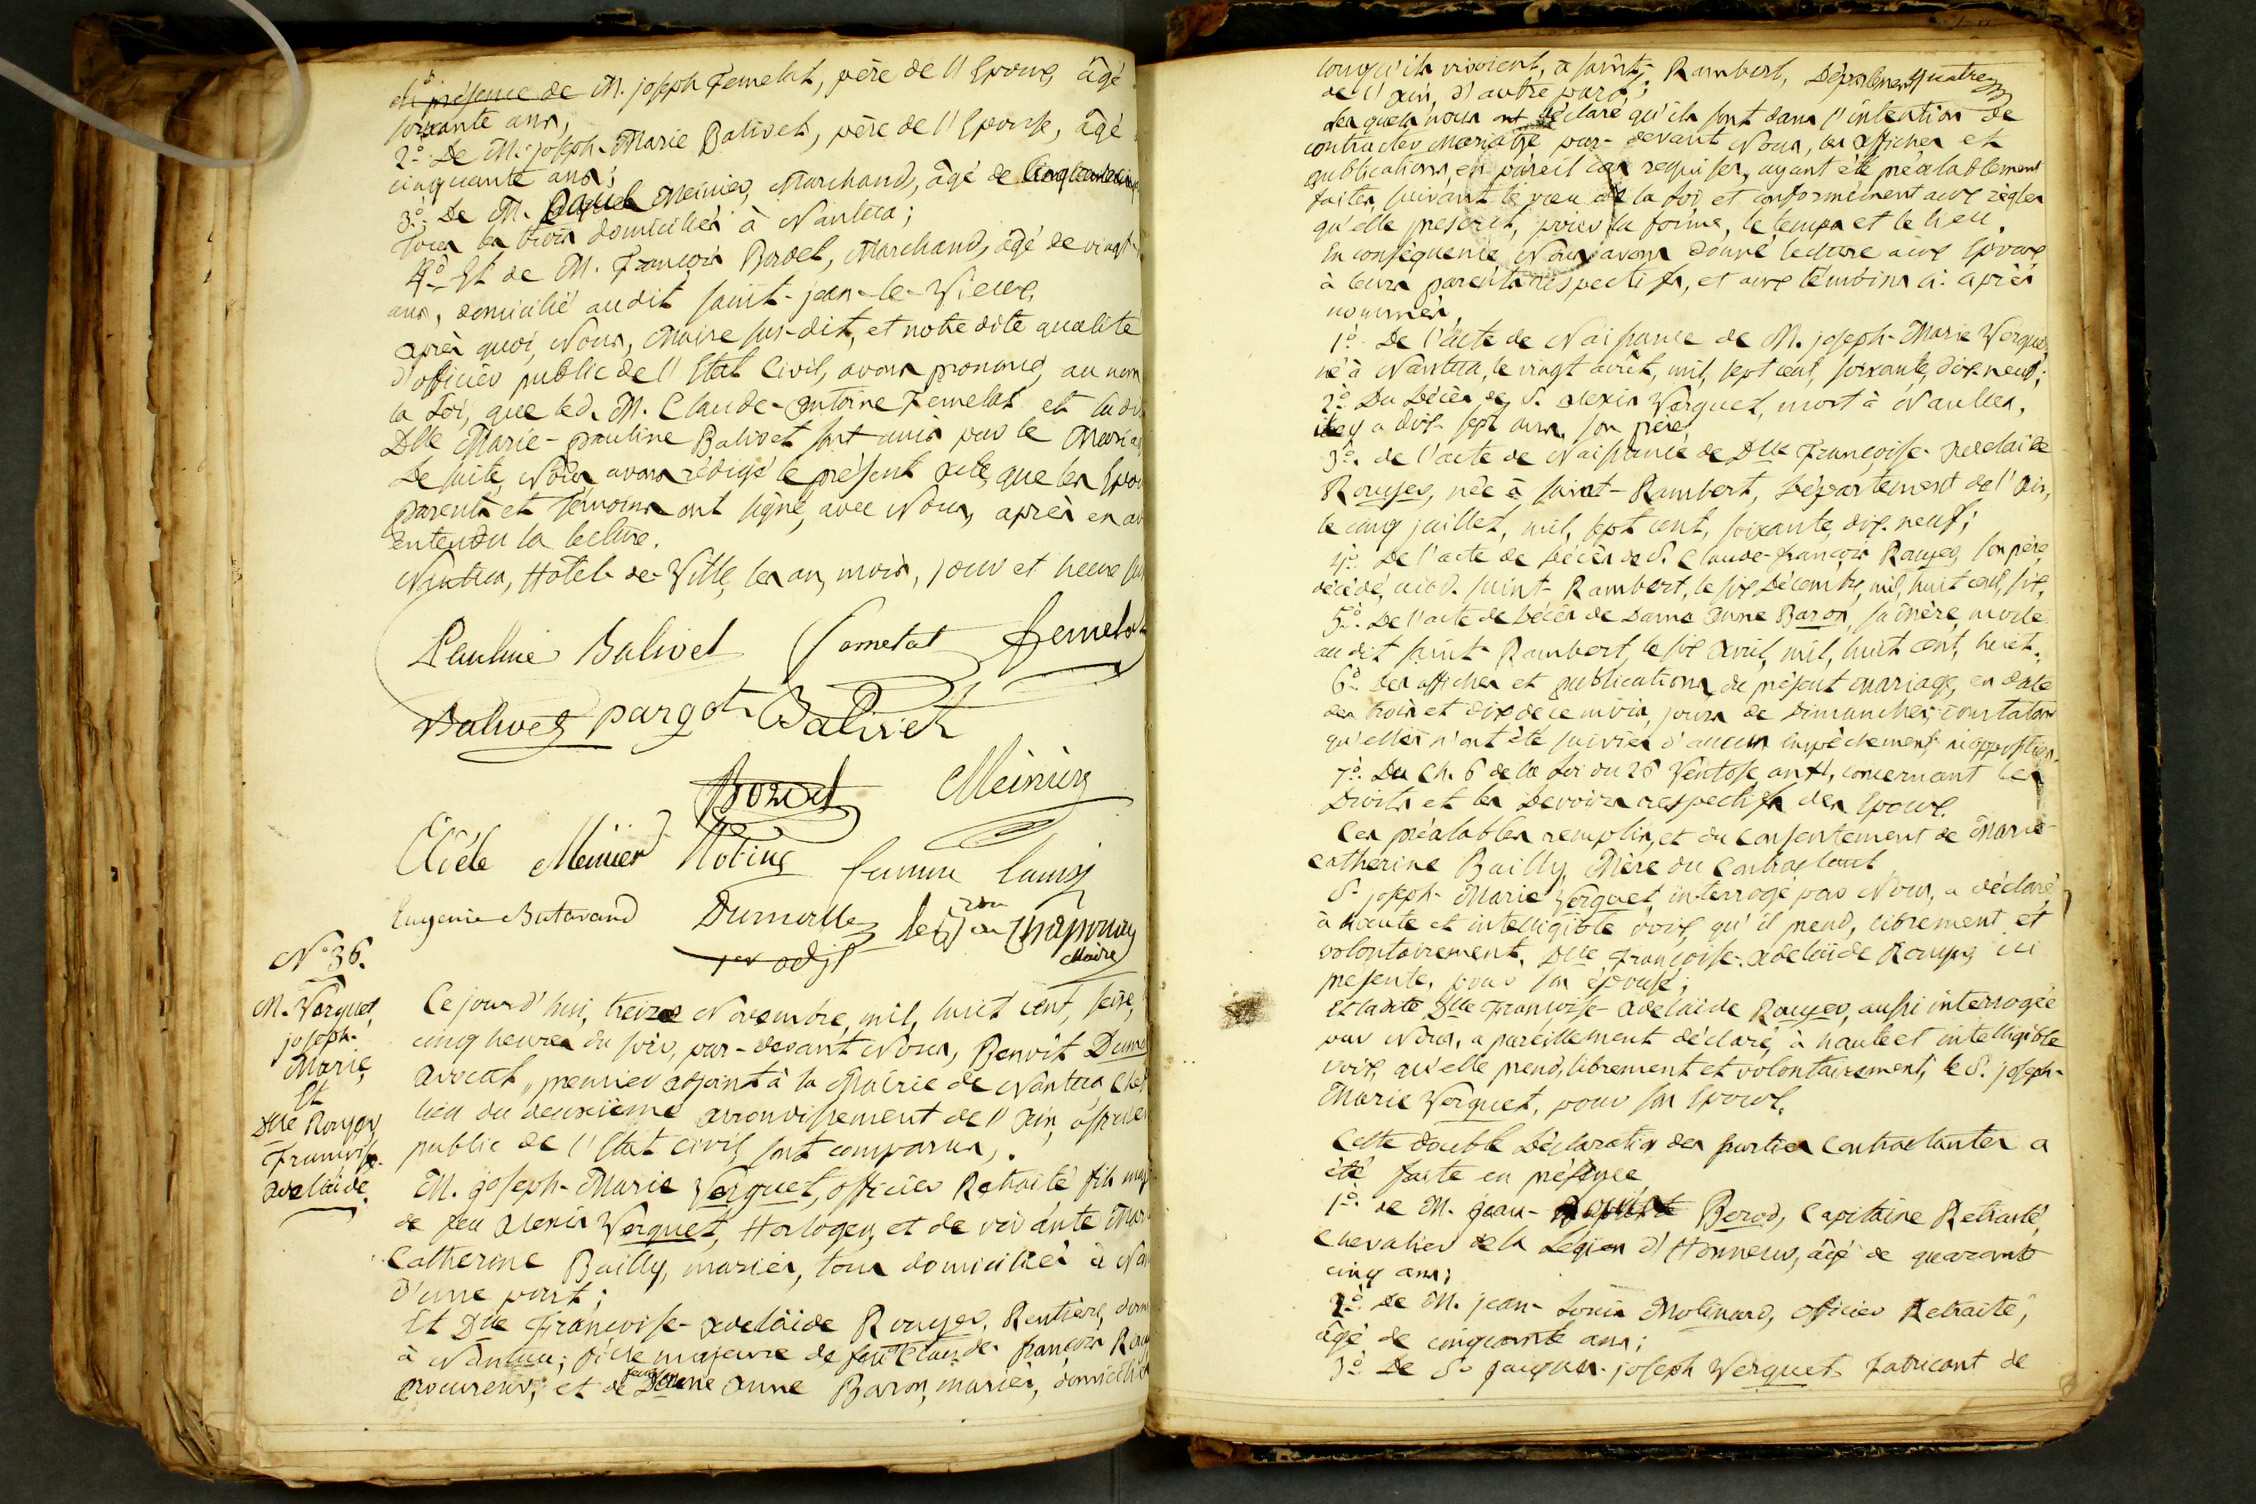 en présence de M. joseph Femelat, père de l'Epoux, âgé
soixante ans,
2.º De M. joseph-Marie Balivet, père de l'Epouse, âgé
cinquante ans;
3.º De M. Meinier, Marchand, âgé de
Tous les trois domiciliés à Nantua;
4.º Et de M. François Bordet, Marchand, âgé de vingt
ans, domicilié audit saint-jean-le-Vieux,
après quoi, Nous, Maire sus-dit, et notre dite qualité
d'officier public de l'Etat Civil, avons prononcé, au nom
la Loi, que led. M. Claude-antoine Femelat et ladite
Dlle Marie-pauline Balivet sont unis par le Maria
De suite, Nous avons rédigé le présent acte, que les Epou
parents et Témoins ont signé, avec Nous, après en av
entendu la lecture.
Nantua, Hôtel-de-Ville, les an, mois, jour et heure su
Pauline Balivet femelat femelat
Balivet pargot Balivet
Bordet Meinier
Clièle Meinier femme
Eugenie Butavand Dumolle Le Bon Chapouny
1er adjt Maire
N.º 36.
M. Verguet,
joseph-
Marie,
Et
Dlle Rouyer
Françoise-
adelaïde.
Ce jourd'hui, treize Novembre, mil, huit cent, seize,
cinq heures du soir, par-devant Nous, Benoît Dumo
avocat, premier adjoint à la Mairie de Nantua, Chef
lieu du deuxième arrondissement de l'Ain, officier
public de l'Etat civil, sont comparus,
M. joseph-Marie Verguet, officier Retraité, fils maj
de feu alexis Verguet, Horloger, et de vivante Mar
Catherine Bailly, mariés, tous domiciliés à Nan
d'une part;
Et Dlle Françoise-adelaïde Rouyer, Rentière, dom
à Nantua; fille majeure de feu Claude-françois Rou
procureur, et de feue Dame anne Baron, mariés, domiciliés
lorsqu'ils vivoient, à saint-Rambert, Département
de l'ain, d'autre part;
Lesquels nous ont déclaré qu'ils sont dans l'intention de
contracter Mariage par-devant Nous, les affiches et
publications, en pareil cas requises, ayant été préalablement
faites, suivant le vœu de la Loi, et conformément aux règles
qu'elle prescrit, pour la forme, le temps et le lieu.
En conséquence, Nous avons donné lecture aux Epoux
à leurs parents respectifs, et aux témoins ci-après
nommés,
1.º De l'acte de Naissance de M. joseph-Marie Verguet,
né à Nantua, le vingt août, mil, sept cent, soixante, dix-neuf;
2.º Du Décès de S. alexis Verguet, mort à Nantua,
il y a dix-sept ans, son père;
3.º de l'acte de Naissance de Dlle Françoise-adelaïde
Rouyer, née à saint-Rambert, Département de l'ain,
le cinq juillet, mil, sept cent, soixante, dix-neuf;
4.º De l'acte de Décès de S. Claude-françois Rouyer, son père
décédé, aud. saint-Rambert, le six Décembre, mil, huit cent, six,
5.º De l'acte de Décès de Dame anne Baron, sa mère, morte
au dit saint-Rambert, le six avril, mil, huit cent, huit.
6.º Des affiches et publications du présent mariage, en date
des trois et dix de ce mois, jours de Dimanches, constatant
qu'elles n'ont été suivies d'aucun empêchement, ni opposition.
7.º Du Ch. 6 de la Loi du 26 Ventose, an XI, concernant les
Droits et les Devoirs respectifs des Epoux.
Ces préalables remplis, et du consentement de Marie-
catherine Bailly, Mère du Contractant
S. joseph-Marie Verguet, interrogé par Nous, a déclaré,
à haute et intelligible voix, qu'il prend, librement et
volontairement, Dlle Françoise-adelaïde Rouyer, ici
présente, pour son épouse;
Et ladite Dlle Françoise-adelaïde Rouyer, aussi interrogée
par Nous, a pareillement déclaré, à haute et intelligible
voix, qu'elle prend, librement et volontairement, le S. joseph-
Marie Verguet, pour son Epoux.
Cette double Déclaration des parties Contractantes a
été faite en présence
1.º de M. jean- Berod, Capitaine Retraité,
Chevalier de la Légion d'Honneur, âgé de quarante
cinq ans;
2.º De M. jean-Louis Molinard, officier Retraité,
âgé de cinquante ans;
3.º De S. jacques-joseph Verguet, fabricant de